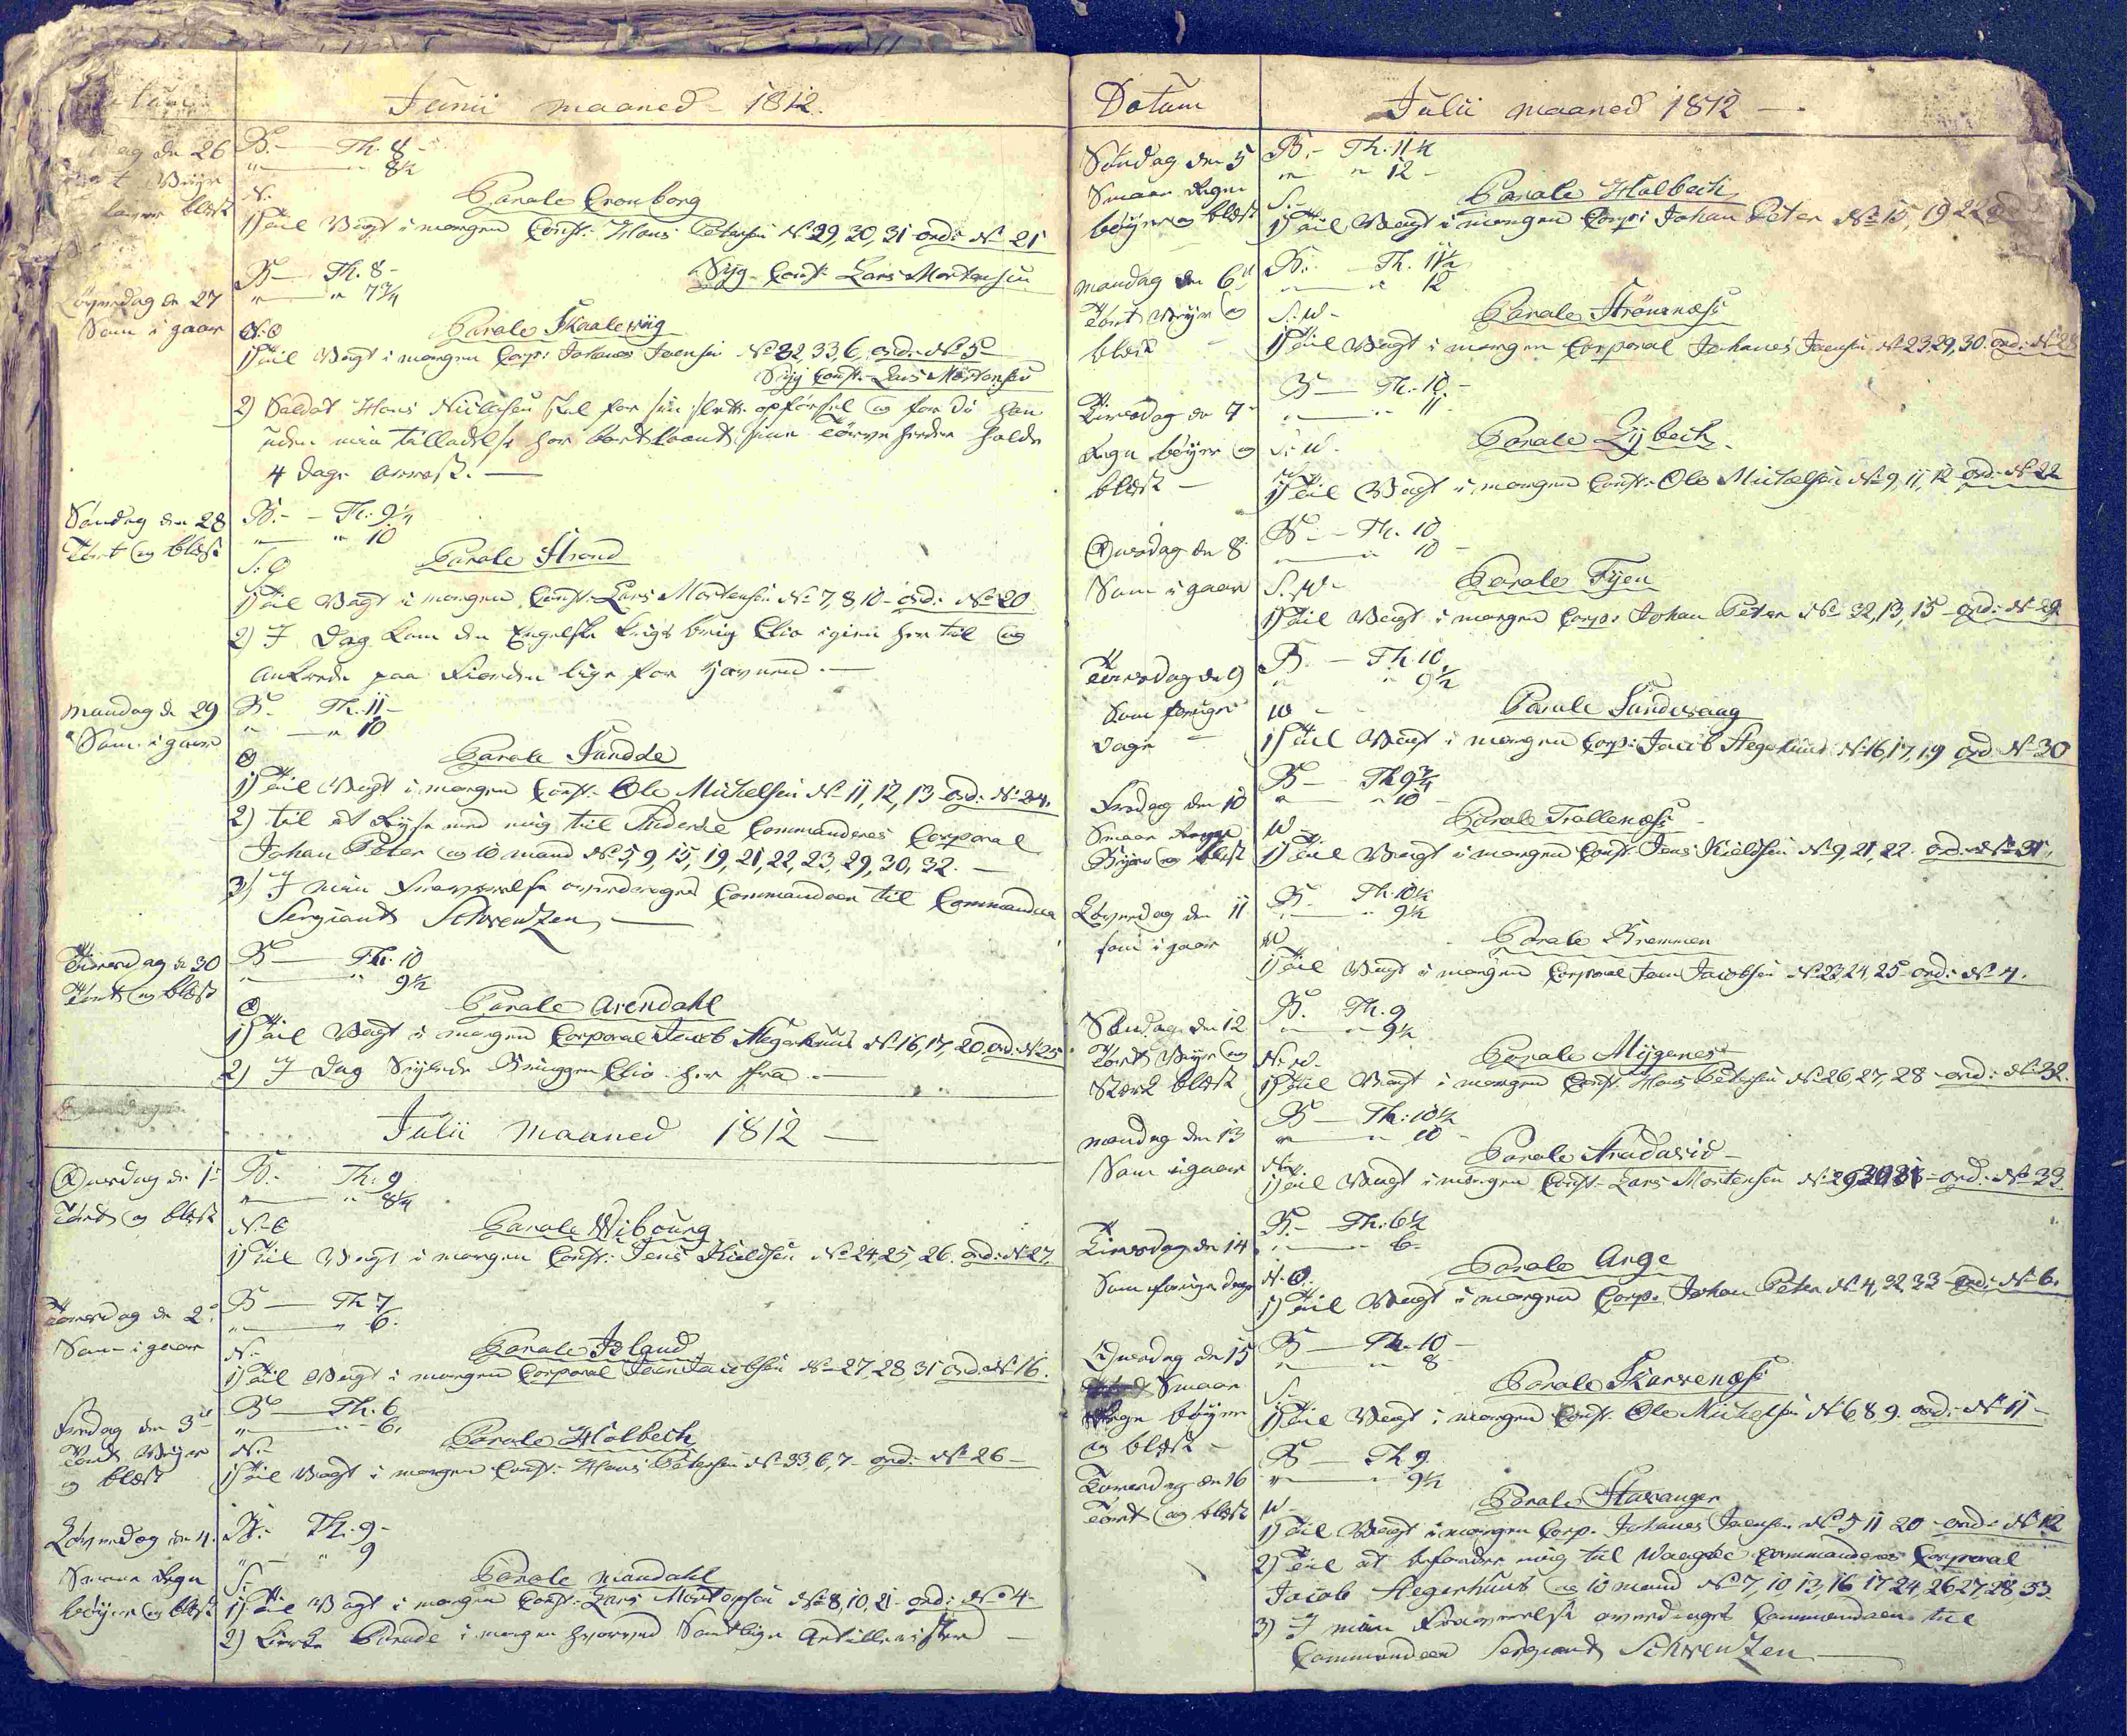 Junii maaned 1812.
ag den 26
B. — Th. 8 -
" — " 8½
N.
Parole Cronborg
1) Til Vagt i morgen Const: Hans Petersen No 29, 30, 31 ord: No 21
Syg Const: Lars Mortensen
Löverdag de 27
Som i gaar
B — Th. 8 -
" — " 7¾
N.O
Parole Skaalewiig
1) Til Vagt i morgen Corp: Johanes Joensen No 32 33, 6, ord: No 5
Syg Const: Lars Mortensen
2) Soldat Hans Niclesen skal for sin slette opförsel og for di han
uden min tilladelse har bortlaant sine Törve holde
4 dage arrest. —
Söndag den 28
Tört og blæst
B. — Th. 9¼
" — " 10
S: O
Parole Strand
1) Til Vagt i morgen Const: Lars Mortensen No 7, 8, 10 - ord: No 20
2) I Dag kom den Engelske krigs brig Clio igien her til og
ankrede paa Fiorden lige for
Mandag de 29
Som i gaar
B. Th. 11 -
" — " 10
O
Parole Sandöe
1) Til Vagt i morgen Const: Ole Michelsen No 11, 12, 13 ord: No 24.
2) til at Rejse med mig til Commanderes Corporal
Johan Peter og 10 mand No 5, 9, 15, 19, 21, 22, 23, 29, 30, 32. —
3) I min Fraværelse overdrages Commandoen til Commandeer
Sergiant Schrentzen —
Tiirsdag d 30
Tört og blæst
B — Th. 10
" — " 9½
O
Parole Arendahl
1) Til Vagt i morgen Corporal Jacob Hegerhuus No 16, 17, 20 ord: No 25
2) I Dag Seylede Briggen Clio her fra. —
Julii Maaned 1812 —
Onsdag de 1
Tört og blæst
B. — Th: 9
" — " 8¼
N. O
Parole Wibourg
1) Til Vagt i morgen Const: Jens Kieldsen No 24, 25, 26 ord: No 27,
Torsdag de 2
Som i gaar
B — Th 7
" — " 6.
N.
Parole Island
1) Til Vagt i morgen Corporal Joen Jacobsen No 27, 28 31 ord: No 16.
Fredag den 3
Tört Vejer
og blæst
B — Th. 6
" — " 6.
N.
Parole Holbech
1) Til Vagt i morgen Const: Hans Petersen No 33, 6, 7 - ord: No 26 —
Löverdag den 4.
Smaae Regn
böyer og blæst
B. — Th. 9 -
" — " 9
S:
Parole Mandahl
1) Til Vagt i morgen Const: Lars Mortensen No 8, 10, 21 - ord: No 4 -
2) Kirke Parade i morgen hvorved Samtlige Artillerister —
Datum
Julii maaned 1812 —
Söndag den 5
Smaae Regn
böyer og blæst
B. — Th. 11½
" — " 12 -
S.
Parole Holbech
1) Til Vagt i morgen Corp: Johan Peter No 15, 19 22
Mandag den 6
Tört Vejer og
blæst
B. — Th. 11½
" — " 12
S: W -
Parole Strömnæss
1) Til Vagt i morgen Corporal Johanes Joensen No 23, 29, 30. ord: No 28
Tiirsdag de 7
Regn böyer og
blæst —
B — Th. 10 -
" — " 11 -
S: W -
Parole Lybech
1) Til Vagt i morgen Const: Ole Michelsen No 9, 11, 12 ord: No 22
Onsdag de 8
Som i gaar
B — Th. 10
" — " 10 -
S. W -
Parole Fyen
1) Til Vagt i morgen Corp: Johan Peter No 32, 13, 15 ord: No 29
Torsdag de 9
Som forrige
Dage
B. — Th 10,
" " 9½
W -
Parole Sandwaag
1) Til Vagt i morgen Corp: Jacob Hegerhuus No 16, 17, 19 ord: No 30
Fredag den 10
Smaae Regn
Böyer og blæst
B — Th 9¾
" — " 10 -
W
Parole Trallenæss
1) Til Vagt i morgen Const: Jens Kieldsen No 9, 21, 22 ord: No 31,
Löverdag den 11
som i gaar
B. Th 10½
" — " 9½
W
Parole Bremmen
1) Til Vagt i morgen Corporal Joen Jacobsen No 23, 24, 25 ord: No 4.
Söndag den 12
Tört Vejer og
Stærk blæst
B. Th. 9
" — " 9½
N. W.
Parole Mygenes
1) Til Vagt i morgen Const: Hans Petersen No 26, 27, 28 - ord: No 32.
mandag den 13
Som i gaar
B — Th: 10½
" — " 10 -
N. W.
Parole
1) Til Vagt i morgen Const: Lars Mortensen No 29 30 31 - ord: No 33
Tiirsdag de 14
Som forrige dage
B. — Th: 6½
" — " 6.
N. O.
Parole Ange
1) Til Vagt i morgen Corp: Johan Peter No 4, 32, 33 ord: No 6.
Onsdag de 15
Smaae
Regn böyer
og blæst —
B — Th. 10 -
" " 8
S.
Parole Skarvenæss
1) Til Vagt i morgen Const: Ole Michelsen No 6, 8 9. ord: No 11 -
Torsdag de 16
Tört og blæst
B — Th 9
" — " 9½
W -
Parole Stavanger
1) Til Vagt i morgen Corp. Johanes Joensen No 5 11 20 ord: No 12
2) Til at befordre mig til Waagöe Commanderes Corporal
Jacob Hegerhuus og 10 mand No 7, 10 13, 16 17 24, 26 27, 28 33.
3) I min Fraværelse overdrages Commandoen til
Commandeer Sergiant Schrentzen —